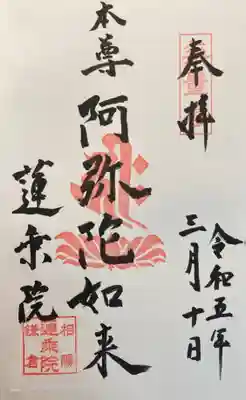 奉拝
令和五年
三月十日
本尊
阿弥陀如来
蓮乗院
相陽
蓮乗院
鎌倉